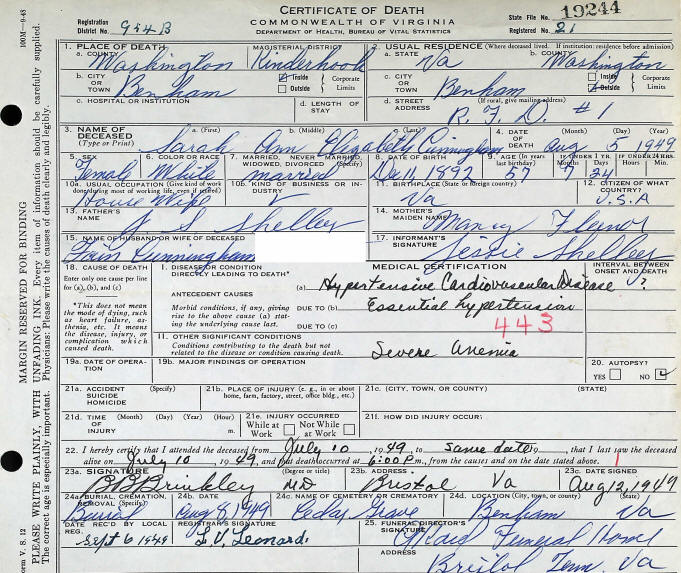 CERTIFICATE OF DEATH
COMMONWEALTH OF VIRGINIA
DEPARTMENT OF HEALTH, BUREAU OF VITAL STATISTICS
Registration District No. 954B
State File No. 19244
Registered No. 21
100M—9-48
1. PLACE OF DEATH
a. COUNTY Washington
MAGISTERIAL DISTRICT Kinderhook
2. USUAL RESIDENCE (Where deceased lived. If institution: residence before admission)
a. STATE Va
b. COUNTY Washington
b. CITY OR TOWN Benham
Inside Outside Corporate Limits
c. CITY OR TOWN Benham
Inside Outside Corporate Limits
c. HOSPITAL OR INSTITUTION
d. LENGTH OF STAY
d. STREET ADDRESS (If rural, give mailing address) R. F. D. #1
3. NAME OF DECEASED (Type or Print)
a. (First) Sarah b. (Middle) Ann Elizabeth c. (Last) Cunningham
4. DATE OF DEATH (Month) Aug (Day) 5 (Year) 1949
5. SEX Female
6. COLOR OR RACE White
7. MARRIED, NEVER MARRIED, WIDOWED, DIVORCED (Specify) married
8. DATE OF BIRTH Dec 11, 1892
9. AGE (In years last birthday) 57
IF UNDER 1 YR. 7 24
IF UNDER 24 HRS.
10a. USUAL OCCUPATION (Give kind of work done during most of working life, even if retired) House Wife
10b. KIND OF BUSINESS OR INDUSTRY
11. BIRTHPLACE (State or foreign country) Va
12. CITIZEN OF WHAT COUNTRY? U.S.A
13. FATHER'S NAME J. S. Shelley
14. MOTHER'S MAIDEN NAME Nancy Fleenor
15. NAME OF HUSBAND OR WIFE OF DECEASED Cunningham
17. INFORMANT'S SIGNATURE Jessie Shelley
18. CAUSE OF DEATH
Enter only one cause per line for (a), (b), and (c)
*This does not mean the mode of dying, such as heart failure, asthenia, etc. It means the disease, injury, or complication which caused death.
MEDICAL CERTIFICATION
INTERVAL BETWEEN ONSET AND DEATH
I. DISEASE OR CONDITION DIRECTLY LEADING TO DEATH* (a) Hypertensive Cardiovascular Disease ?
ANTECEDENT CAUSES
Morbid conditions, if any, giving rise to the above cause (a) stating the underlying cause last.
DUE TO (b) Essential hypertension
DUE TO (c)
443
II. OTHER SIGNIFICANT CONDITIONS
Conditions contributing to the death but not related to the disease or condition causing death.
Severe Anemia
19a. DATE OF OPERATION
19b. MAJOR FINDINGS OF OPERATION
20. AUTOPSY?
YES NO
21a. ACCIDENT SUICIDE HOMICIDE (Specify)
21b. PLACE OF INJURY (e. g., in or about home, farm, factory, street, office bldg., etc.)
21c. (CITY, TOWN, OR COUNTY) (STATE)
21d. TIME OF INJURY (Month) (Day) (Year) (Hour) m.
21e. INJURY OCCURRED While at Work Not While at Work
21f. HOW DID INJURY OCCUR?
22. I hereby certify that I attended the deceased from July 10, 1949, to same date 19 , that I last saw the deceased
alive on July 10, 1949, and that death occurred at 6:00 P m., from the causes and on the date stated above.
23a. SIGNATURE (Degree or title) B B Brinkley MD
23b. ADDRESS Bristol Va
23c. DATE SIGNED Aug 12, 1949
24a. BURIAL, CREMATION, REMOVAL (Specify) Burial
24b. DATE Aug 8, 1949
24c. NAME OF CEMETERY OR CREMATORY Cedar Grove
24d. LOCATION (City, town, or county) (State) Benham Va
DATE REC'D BY LOCAL REG. Sept 6 1949
REGISTRAR'S SIGNATURE L. V. Leonard
25. FUNERAL DIRECTOR'S SIGNATURE Funeral Home
ADDRESS Bristol Tenn. Va
MARGIN RESERVED FOR BINDING
PLEASE WRITE PLAINLY, WITH UNFADING INK. Every item of information should be carefully supplied.
The correct age is especially important. Physicians: Please write the causes of death clearly and legibly.
Form V. S. 12